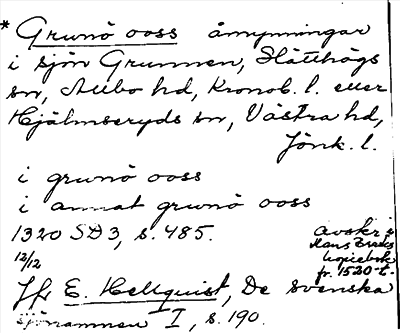 * Grunö ooss åmynningar
i sjön Grunnen, Slätthögs
sn, Allbo hd, Kronob. l. eller
Hjälmseryds sn, Västra hd,
Jönk. l.
i grunö ooss
i annat grunö ooss
1320 SD 3, s. 485.
12/12
avskr i
Hans
fr. 1520-t.
Jfr E. Hellquist, De svenska
sjönamnen I, s. 190.